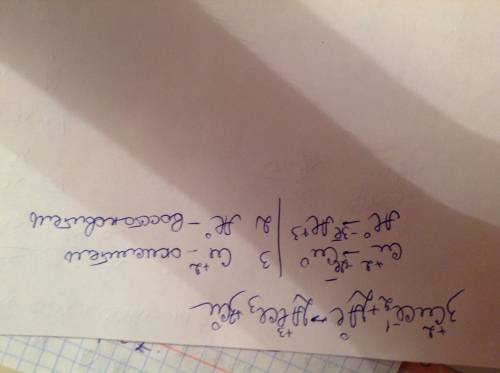 3CuCl₂ + 2Al → 2AlCl₃ + 3Cu
Cu⁺² Cu⁰ | 3 Cu⁺² - окислитель
Al⁰ -3e̅ Al⁺³ | 2 Al⁰ - восстановитель